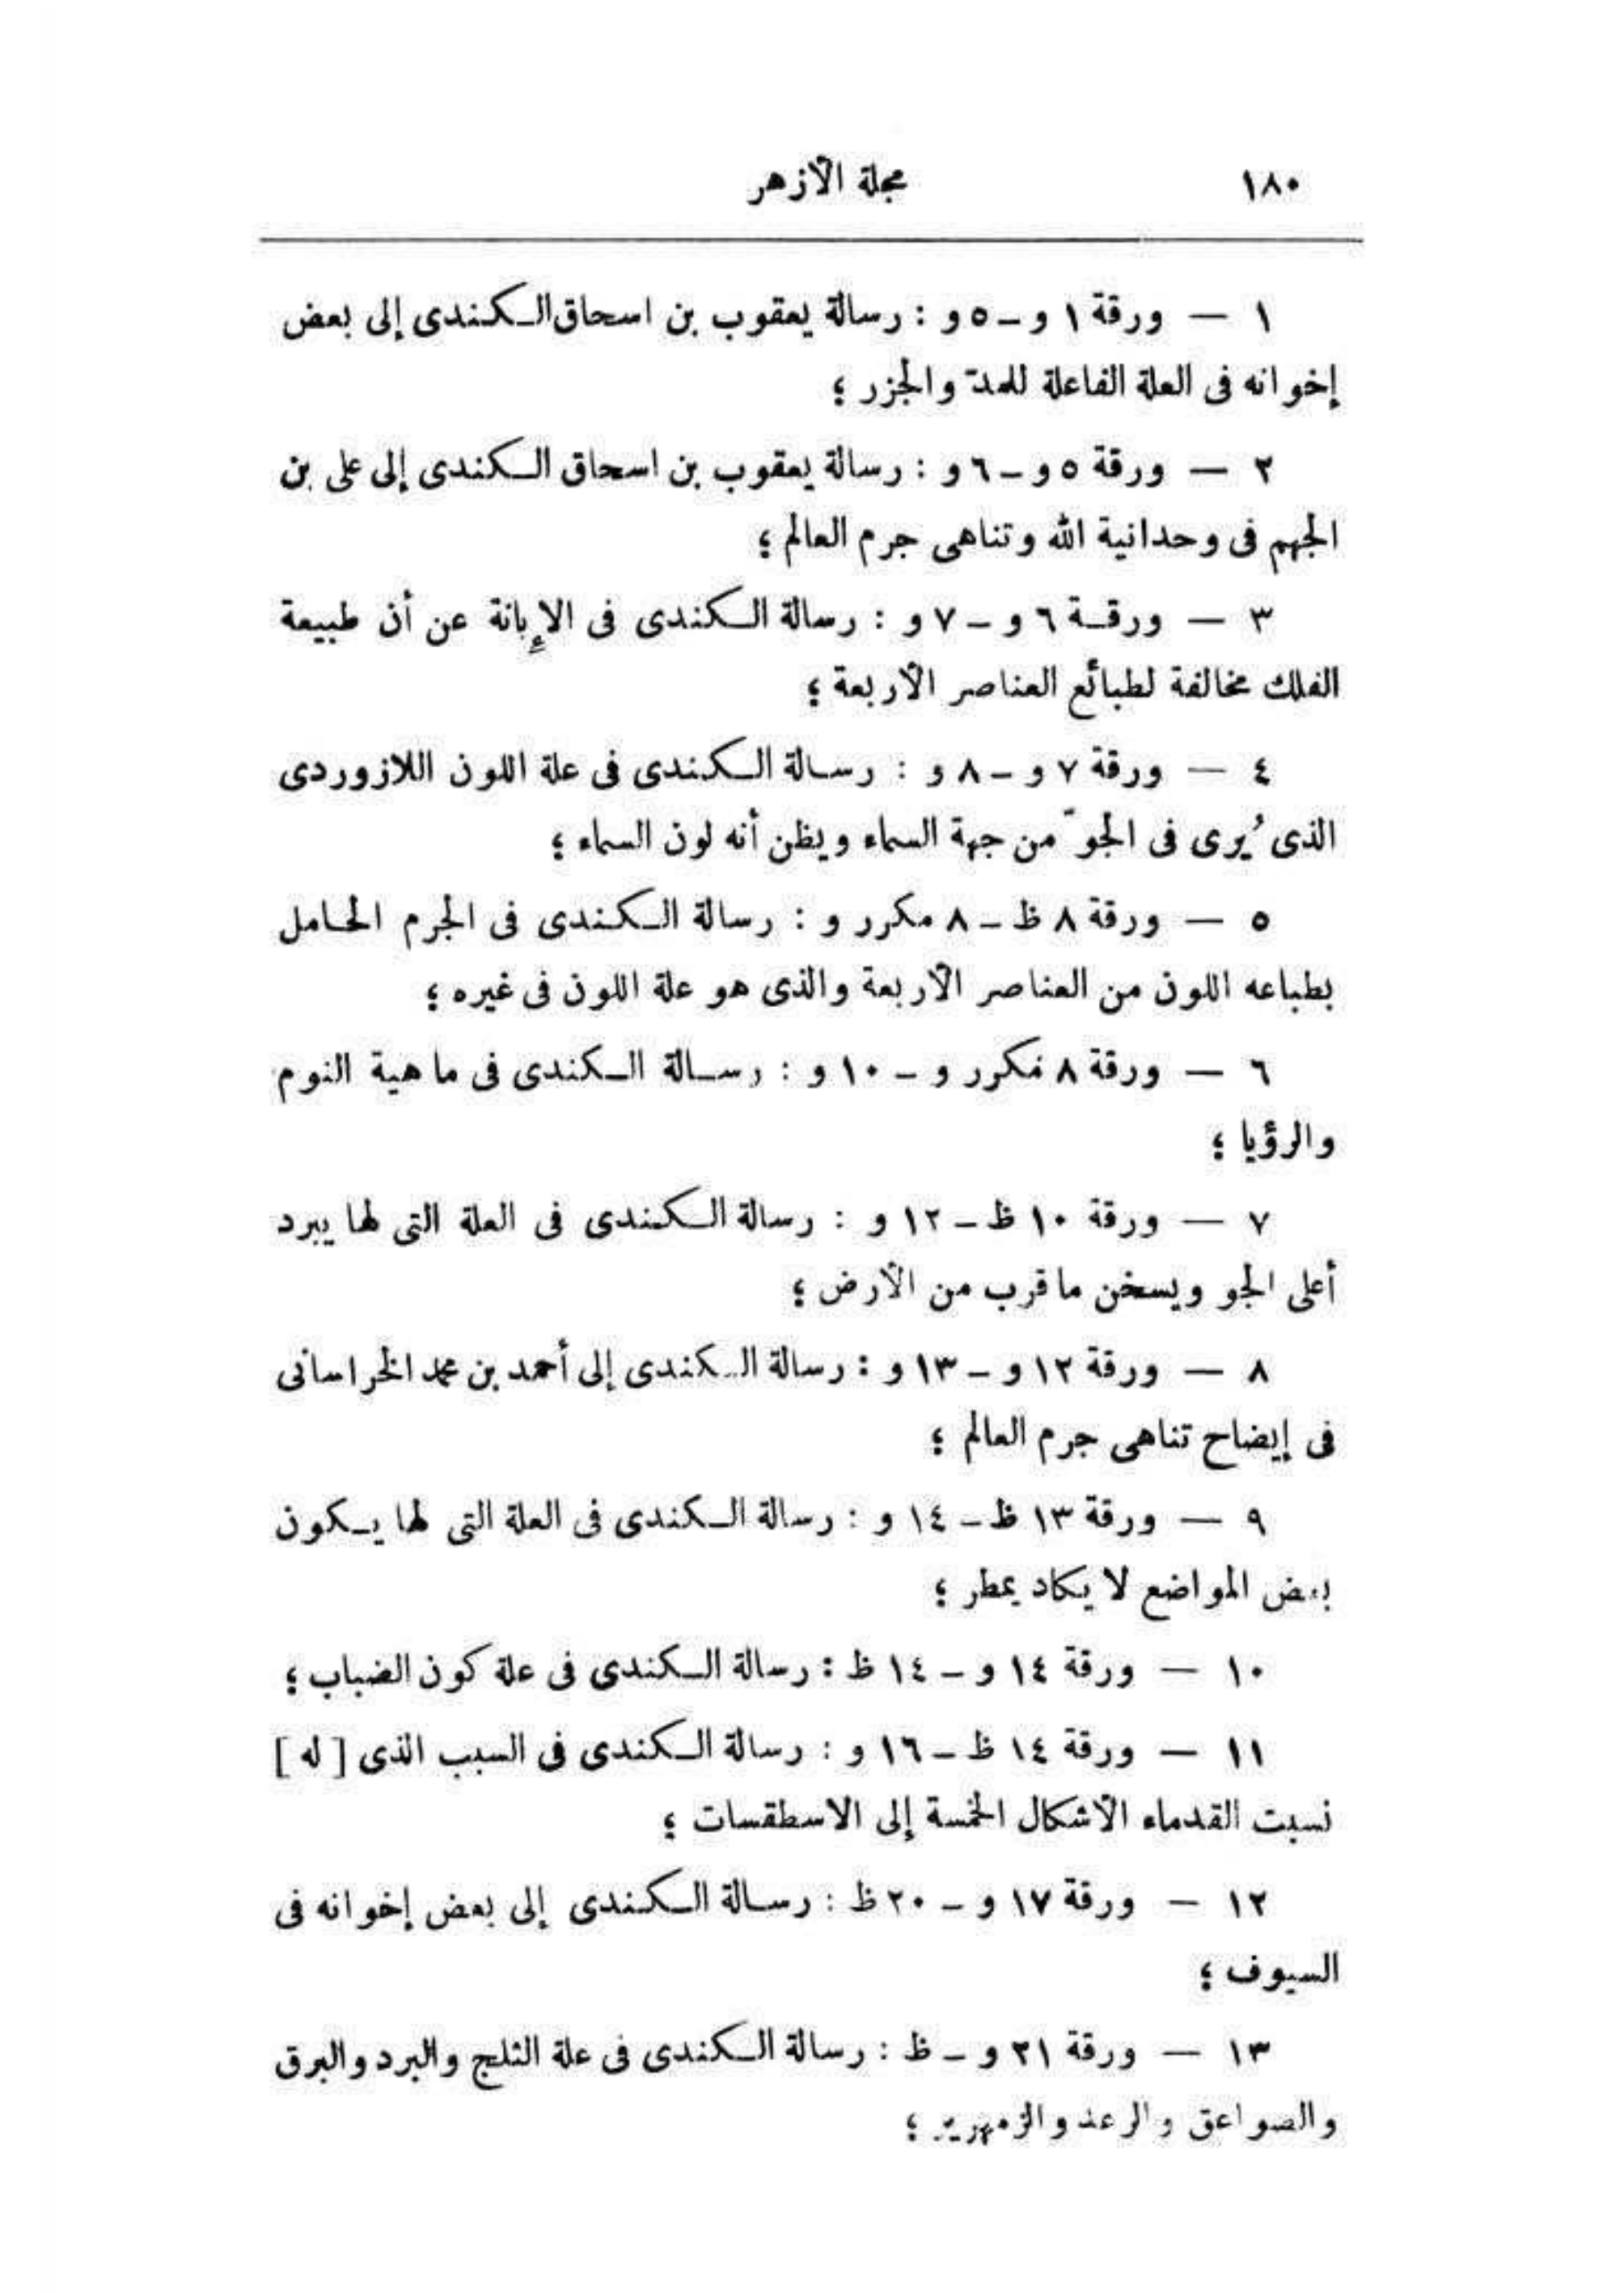 ١٨٠
مجلة الأزهر
١ — ورقة ١ و – ٥ و : رسالة يعقوب بن اسحاق الكندى إلى بعض
إخوانه فى العلة الفاعلة للمدّ والجزر ؛
٢ — ورقة ٥ و – ٦ و : رسالة يعقوب بن اسحاق الكندى إلى على بن
الجهم فى وحدانية الله وتناهى جرم العالم ؛
٣ — ورقة ٦ و – ٧ و : رسالة الكندى فى الإبانة عن أن طبيعة
الفلك مخالفة لطبائع العناصر الأربعة ؛
٤ — ورقة ٧ و – ٨ و : رسالة الكندى فى علة اللون اللازوردى
الذى يُرى فى الجوّ من جهة السماء ويظن أنه لون السماء ؛
٥ — ورقة ٨ ظ – ٨ مكرر و : رسالة الكندى فى الجرم الحامل
بطباعه اللون من العناصر الأربعة والذى هو علة اللون فى غيره ؛
٦ — ورقة ٨ مكرر و – ١٠ و : رسالة الكندى فى ماهية النوم
والرؤيا ؛
٧ — ورقة ١٠ ظ – ١٢ و : رسالة الكندى فى العلة التى لها يبرد
أعلى الجو ويسخن ما قرب من الأرض ؛
٨ — ورقة ١٢ و – ١٣ و : رسالة الكندى إلى أحمد بن محمد الخراسانى
فى إيضاح تناهى جرم العالم ؛
٩ — ورقة ١٣ ظ – ١٤ و : رسالة الكندى فى العلة التى لها يكون
بعض المواضع لا يكاد يمطر ؛
١٠ — ورقة ١٤ و – ١٤ ظ : رسالة الكندى فى علة كون الضباب ؛
١١ — ورقة ١٤ ظ – ١٦ و : رسالة الكندى فى السبب الذى [ له ]
نسبت القدماء الأشكال الخمسة إلى الاسطقسات ؛
١٢ — ورقة ١٧ و – ٢٠ ظ : رسالة الكندى إلى بعض إخوانه فى
السيوف ؛
١٣ — ورقة ٢١ و – ظ : رسالة الكندى فى علة الثلج والبرد والبرق
والصواعق والرعد والزمهرير ؛